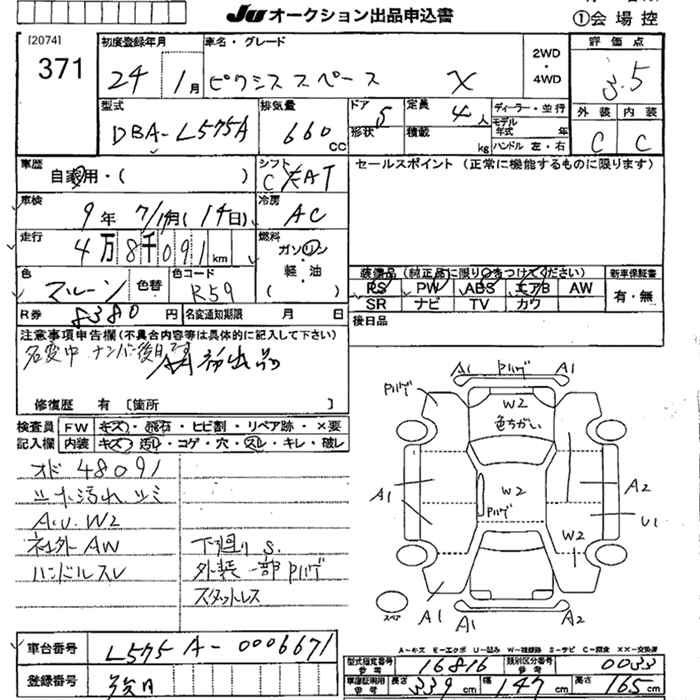 JU オークション出品申込書
①会場控
[2074]
371
初度登録年月
24 1月
車名・グレード
ピクシススペース X
2WD
・
4WD
評価点
3.5
外装 内装
C C
型式
DBA-L575A
排気量
660 CC
ドア 5
形状
定員 4人
積載 kg
ディーラー・並行
モデル年式 年
ハンドル 左・右
車歴
自家用・( )
シフト
CAT
セールスポイント (正常に機能するものに限ります)
車検
9年 7/1月(14日)
冷房
AC
走行
4万8千091km
燃料
ガソリン
軽・油
( )
色
マルーン
色替
色コード
R59
装備品(純正品に限り○をつけてください)
新車保証書
PS PW ABS エアB AW
SR ナビ TV カワ
有・無
R券 8380円
名変通知期限 月 日
後日品
注意事項申告欄(不具合内容等は具体的に記入して下さい)
名変中 ナンバー後日です
AA 初出品
修復歴 有 [箇所 ]
検査員 FW キズ・飛石・ヒビ割・リペア跡・×要
記入欄 内装 キズ・汚れ・コゲ・穴・スレ・キレ・破レ
オド 48091
シート汚れ シミ
A.U.W2
社外AW
ハンドルスレ
下廻りS.
外装一部Pハゲ
スタッドレス
A1 Pハゲ A1
Pハゲ
W2
色ちがい
A1
W2
Pハゲ
A2
U1
W2
A1
A1
A2
スペア
車台番号 L575A-0006671
登録番号 後日
A-キズ E-エクボ U-凹み W-補修跡 S-サビ C-腐食 XX-交換済
型式指定番号 参考 16816
類別区分番号 参考 0033
車庫証明用 参考 長さ 339cm 幅 147cm 高さ 165cm